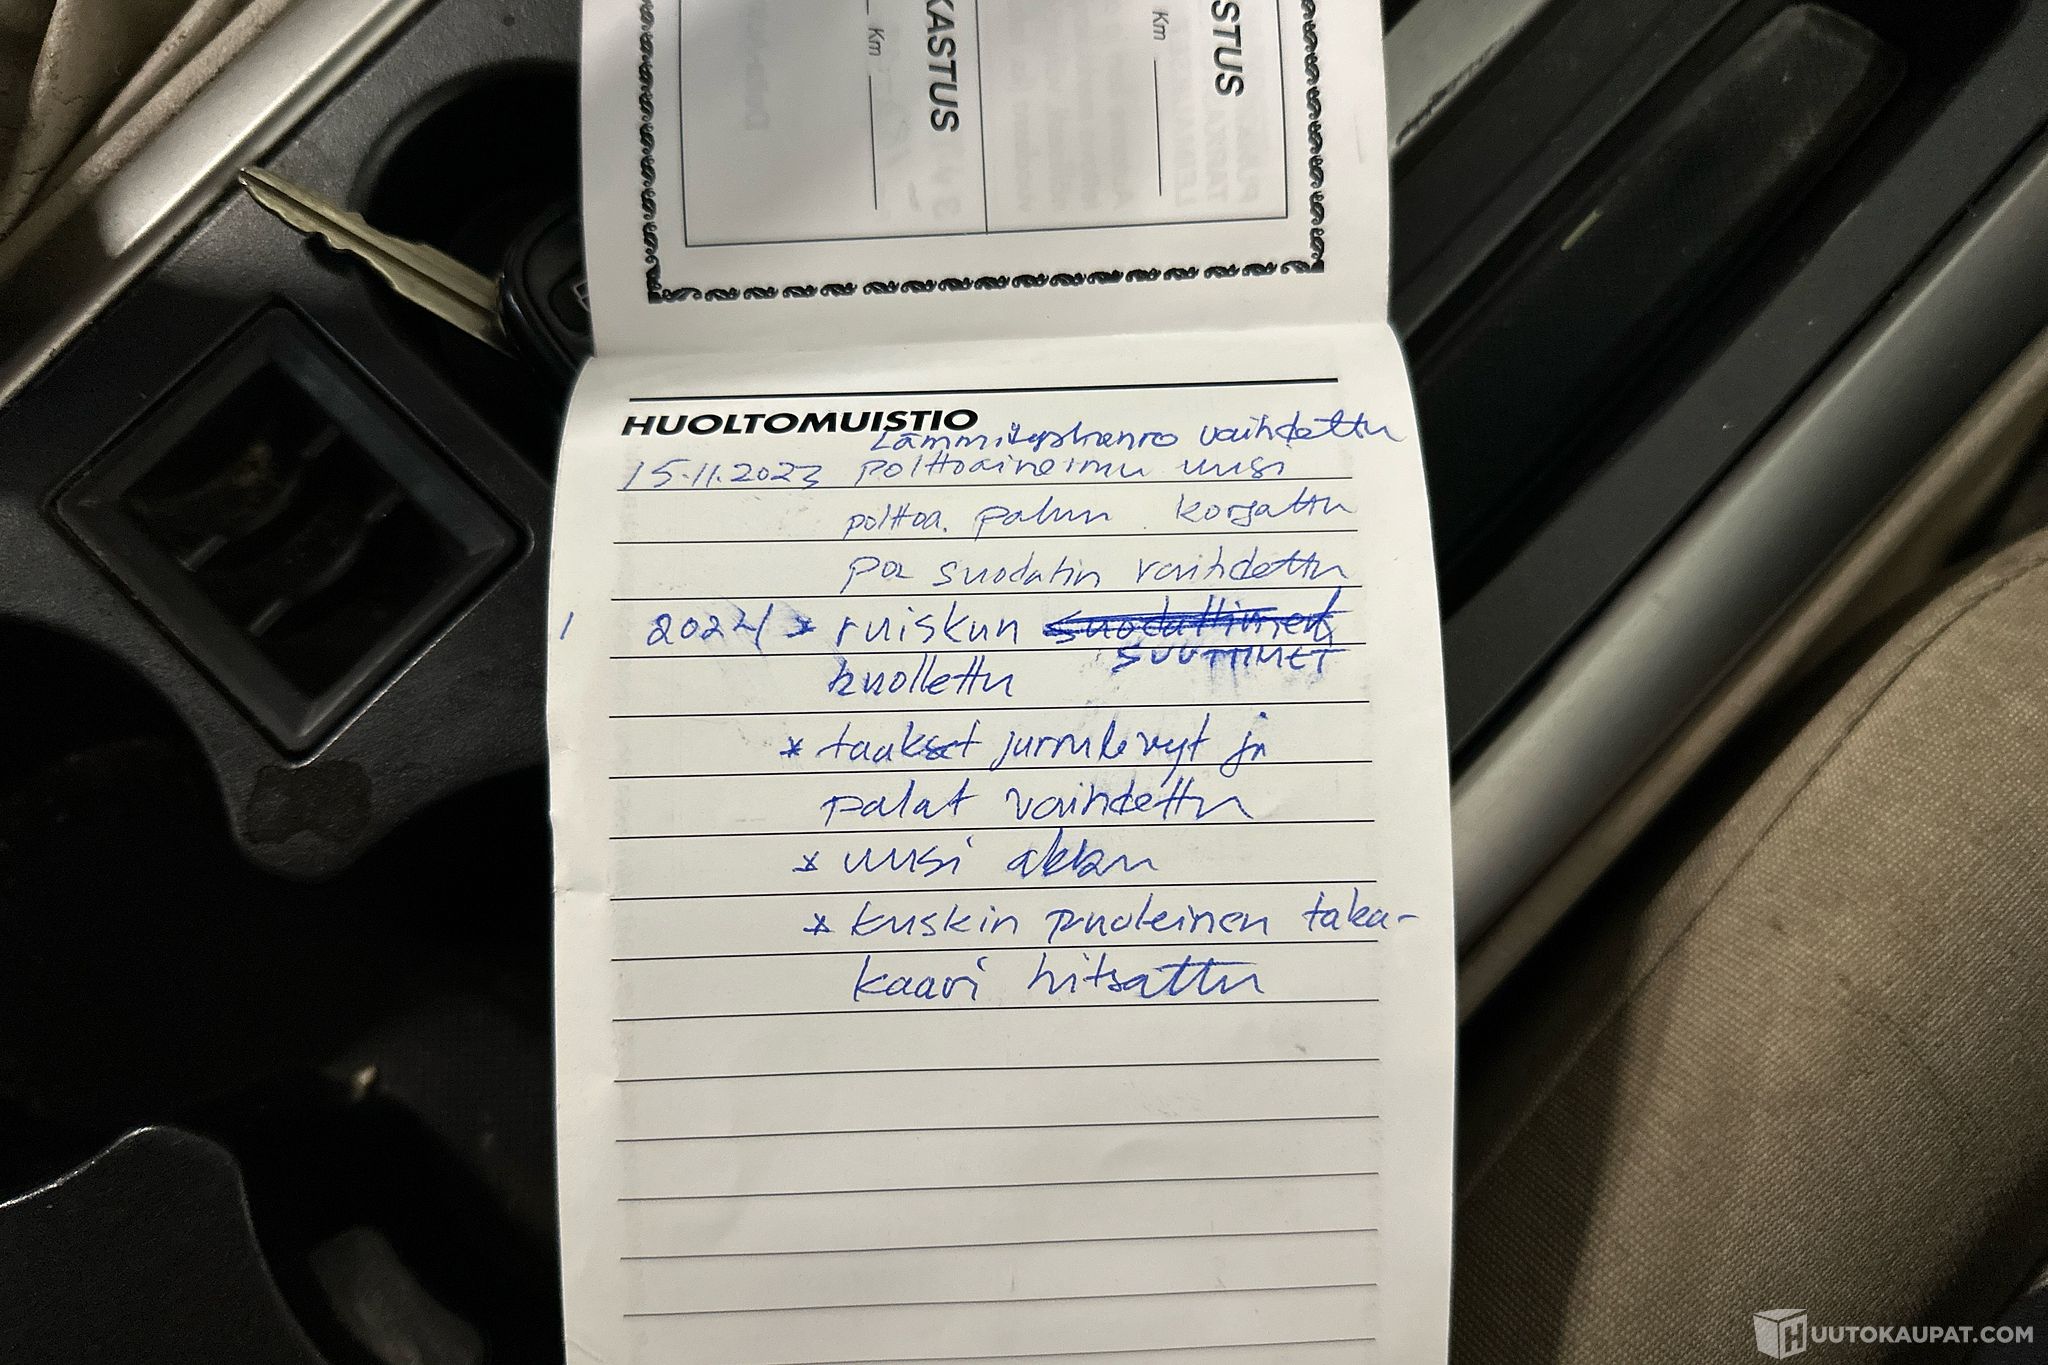 KASTUS
Km
STUS
Km
HUOLTOMUISTIO
vaihdettu
15.11.2023 polttoaineimu uusi
polttoa. paluu korjattu
pa suodatin vaihdettu
2024 * ruiskun suodattimet
SUUTTIMET
huollettu
* taakset jarrulevyt ja
palat vaihdettu
* uusi akku
* kuskin puoleinen taka-
kaari hitsattu
HUUTOKAUPAT.COM